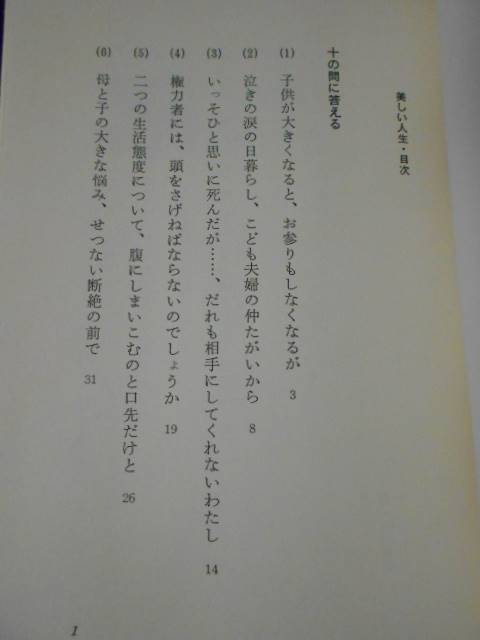 美しい人生・目次
十の問に答える
(1) 子供が大きくなると、お参りもしなくなるが 3
(2) 泣きの涙の日暮らし、こども夫婦の仲たがいから 8
(3) いっそひと思いに死んだが……、だれも相手にしてくれないわたし 14
(4) 権力者には、頭をさげねばならないのでしょうか 19
(5) 二つの生活態度について、腹にしまいこむのと口先だけと 26
(6) 母と子の大きな悩み、せつない断絶の前で 31
1